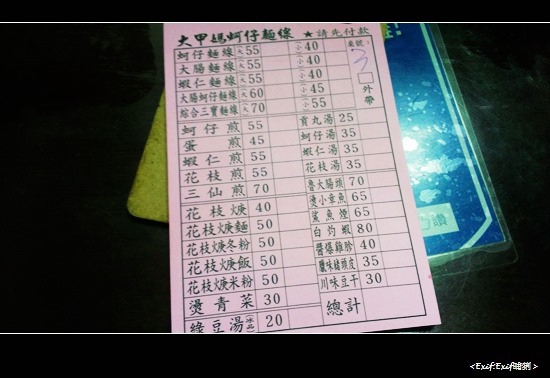 大甲媽蚵仔麵線 ★請先付款
蚵仔麵線 大 55 小 40 桌號:
大腸麵線 大 55 小 40 3
蝦仁麵線 大 55 小 40
大腸蚵仔麵線 大 60 小 45 外帶
綜合三寶麵線 大 70 小 55
蚵仔煎 55 貢丸湯 25
蛋煎 45 蚵仔湯 35
蝦仁煎 55 蝦仁湯 35
花枝煎 55 花枝湯 35
三仙煎 70 魯大腸頭 70
花枝焿 40 燙小章魚 65
花枝焿麵 50 鯊魚煙 65
花枝焿冬粉 50 白灼蝦 80
花枝焿飯 50 醬爆雞胗 40
花枝焿米粉 50 臘味豬頭皮 35
燙青菜 30 川味豆干 30
綠豆湯 20 總計
讚
<Exif:Exif縮網>